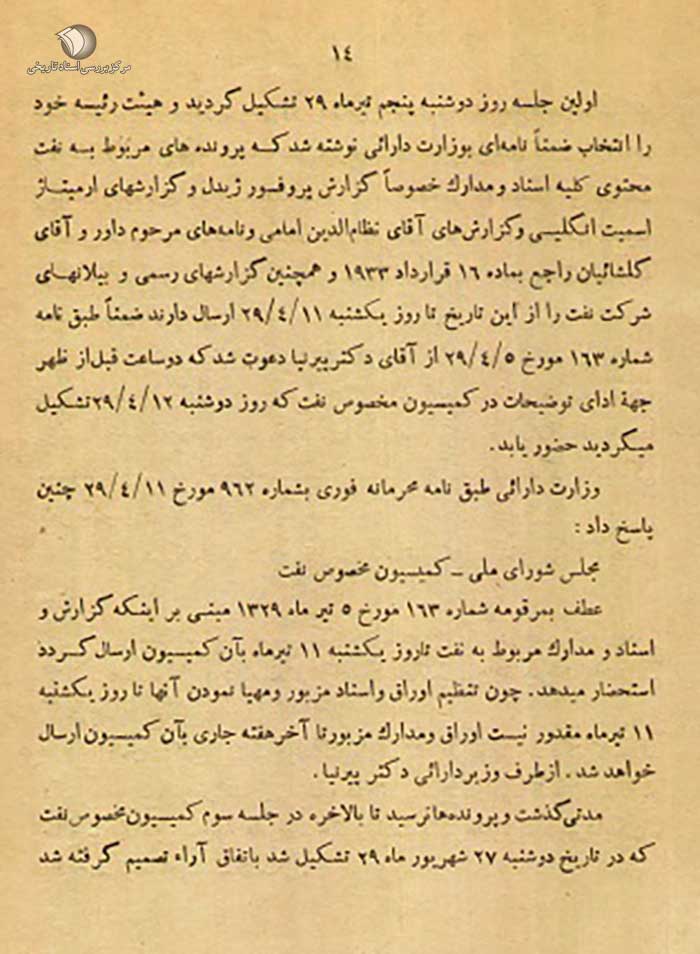 مرکز بررسی اسناد تاریخی
۱٤
اولین جلسه روز دوشنبه پنجم تیرماه ۲۹ تشکیل گردید و هیئت رئیسه خود
را انتخاب ضمناً نامه‌ای بوزارت دارائی نوشته شد که پرونده های مربوط به نفت
محتوی کلیه اسناد و مدارك خصوصاً گزارش پروفسور ژیدل و گزارشهای ارمیتاژ
اسمیت انگلیسی و گزارش‌های آقای نظام‌الدین امامی و نامه‌های مرحوم داور و آقای
گلشائیان راجع بماده ۱۶ قرارداد ۱۹۳۳ و همچنین گزارشهای رسمی و بیلانهای
شرکت نفت را از این تاریخ تا روز یکشنبه ۲۹/٤/۱۱ ارسال دارند ضمناً طبق نامه
شماره ۱۶۳ مورخ ۲۹/٤/۵ از آقای دکتر پیرنیا دعوت شد که دو ساعت قبل از ظهر
جهة ادای توضیحات در کمیسیون مخصوص نفت که روز دوشنبه ۲۹/٤/۱۲ تشکیل
میگردید حضور یابد.
وزارت دارائی طبق نامه محرمانه فوری بشماره ۹۶۲ مورخ ۲۹/٤/۱۱ چنین
پاسخ داد :
مجلس شورای ملی ـ کمیسیون مخصوص نفت
عطف بمرقومه شماره ۱۶۳ مورخ ۵ تیر ماه ۱۳۲۹ مبنی بر اینکه گزارش و
اسناد و مدارك مربوط به نفت تا روز یکشنبه ۱۱ تیرماه بآن کمیسیون ارسال گردد
استحضار میدهد. چون تنظیم اوراق و اسناد مزبور و مهیا نمودن آنها تا روز یکشنبه
۱۱ تیرماه مقدور نیست اوراق و مدارك مزبور تا آخر هفته جاری بآن کمیسیون ارسال
خواهد شد. از طرف وزیر دارائی دکتر پیرنیا.
مدتی گذشت و پرونده‌ها نرسید تا بالاخره در جلسه سوم کمیسیون مخصوص نفت
که در تاریخ دوشنبه ۲۷ شهریور ماه ۲۹ تشکیل شد باتفاق آراء تصمیم گرفته شد